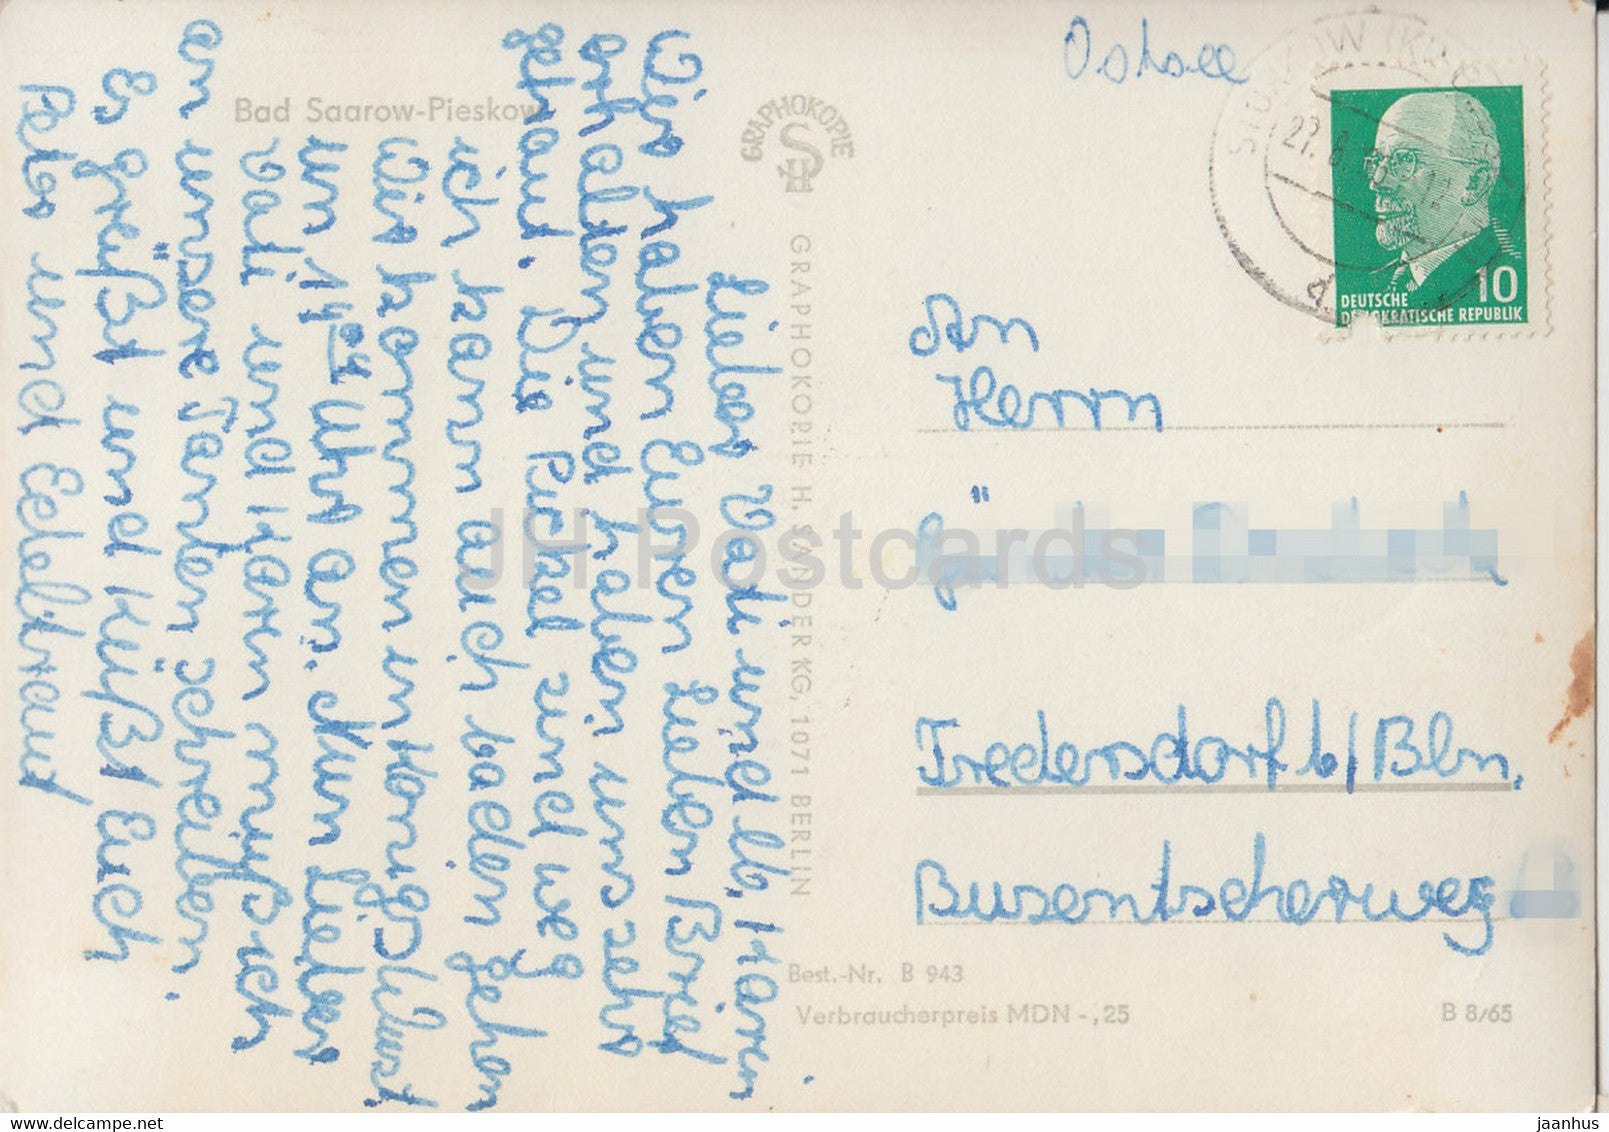 Ostsee
Bad Saarow-Pieskow
GRAPHOKOPIE
GRAPHOKOPIE H. SANDER KG, 1071 BERLIN
DEUTSCHE
DEMOKRATISCHE REPUBLIK
10
27. 8.
Lieber Vati und lb. Karin
Wir haben Euren lieben Brief
erhalten und haben uns sehr
gefreut. Die Pickel sind weg
ich kann auch baden gehen
Wir kommen in Königs Wust
um 14 04 Uhr an. Nun lieber
Vati und Karin muß ich
an unsere Tanten schreiben.
Es grüßt und küßt Euch
Peter und Edeltraud
An
Herrn
Fredersdorf b/Bln.
Busentscherweg
Best.-Nr. B 943
Verbraucherpreis MDN -,25
B 8/65
JH Postcards
www.delcampe.net
jaanhus